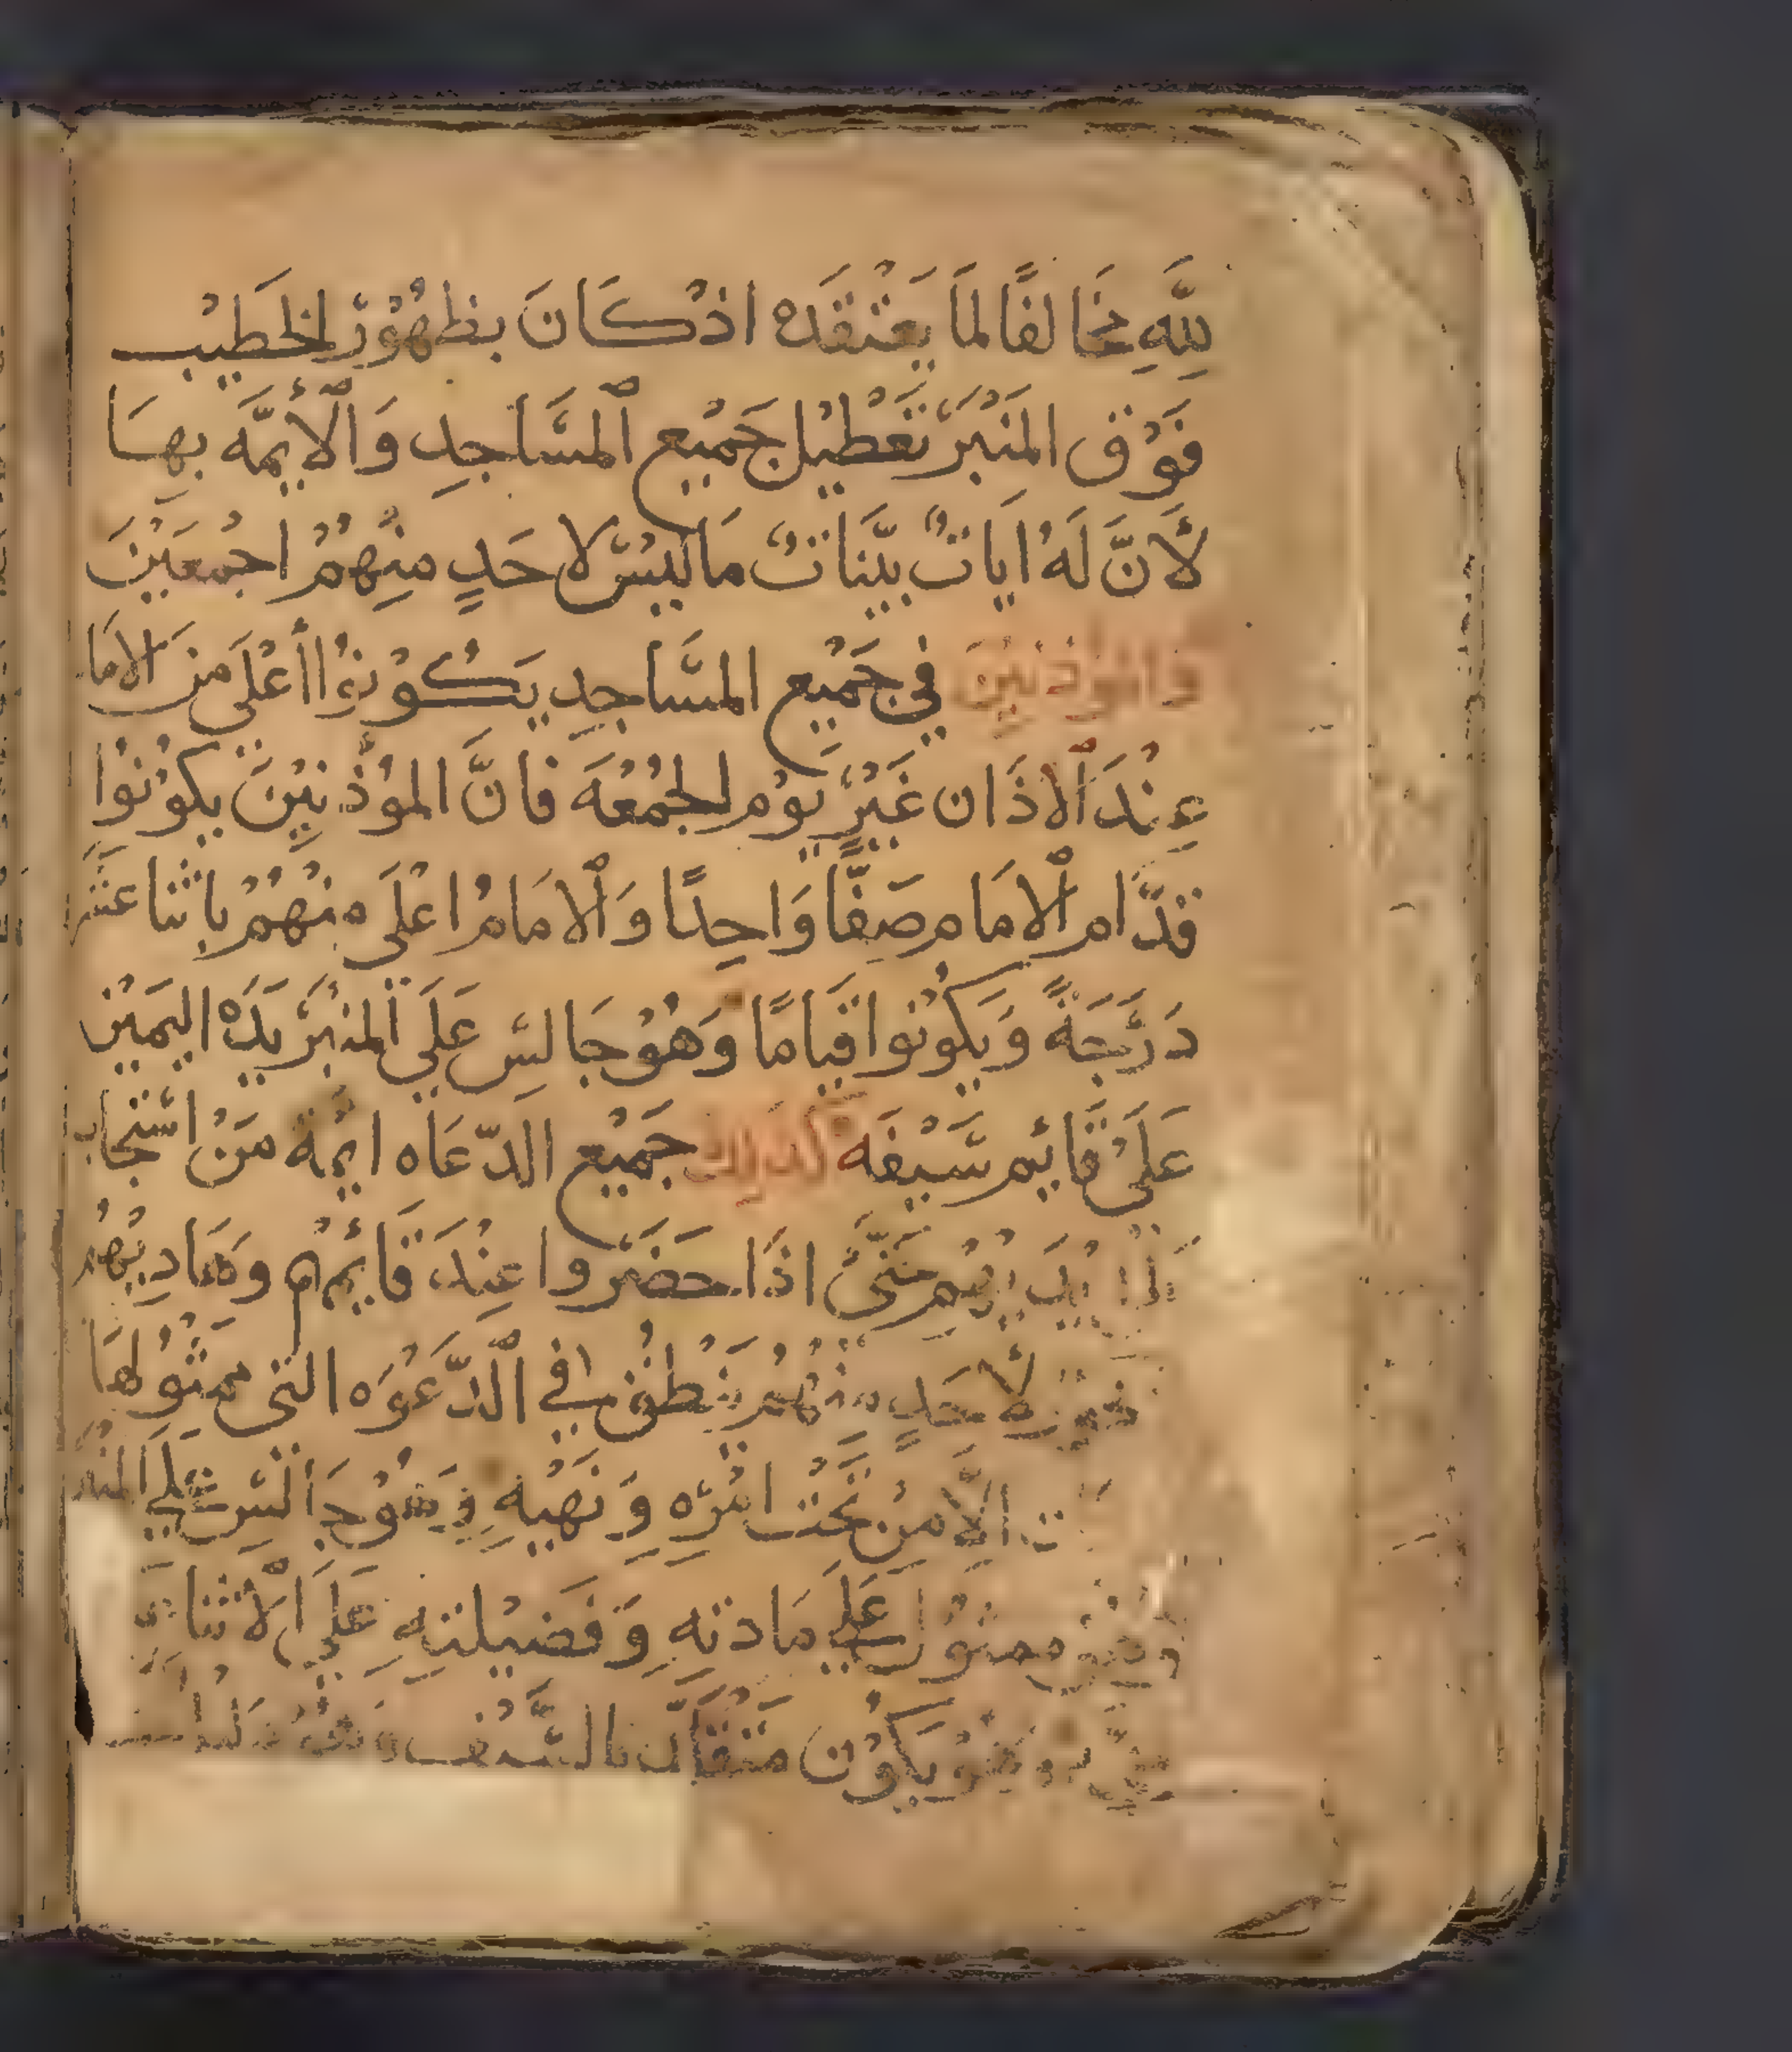 لِلَّهِ مخَالفًا لمَا يَعْتقدَه اذْ كَانَ بظهُوْر الخَطيْب
فَوْق المنْبَرَ تَعْطيْل جَميْع ٱلمسَّاجِدِ وَٱلأيمَّه بهِسَا
لأَنَّ لَهُ ايَاتٌ بيّنَاتٌ مَا ليْسَ لاحَدٍ منهُمْ اجْمعَيْنَ
والموذنيْنَ في جَميْع المسَّاجِدِ يَكُوْنوْا أعْلَى منَ الامَا
عِنْدَ ٱلاذَان غَيْرِ يَوْم الجُمُعَه فانَّ الموْذّنيْنَ يكوْنوْا
قدَّام ٱلامَام صَفًّا وَاحِدًا وَٱلامَامُ اعْلَى منْهُمْ باثنا عَشر
دَرَجَةً وَيكوُنوا قيَامًا وَهُوْ جَالسِ عَلَي ٱلمنْبَرَ يَدَهْ اليَميْن
عَلَىْ قَائِم سَّيْفَه كذلك جَميْع الدّعَاه ايمَّة مَنْ اسْتجَاب
حَتّىَ اذَا حَضَروا عِنْدَ قَائِمهُمْ وَهَاديْهُمْ
لأحَدٍ منْهُمْ يَنْطُق في ٱلدّعَوَه التي ممثوُلهَا
الاَّ مَنْ تحَتْ امْرِه وَنَهْيهِ وَهُوْ جَالسِ عَلَي المنبر
ممثوُل عَلَي مَادتهِ وَفَضيْلتهِ عَلَي ٱلاثنا
يَكوُن متقَلّدَا بالسَّيْف